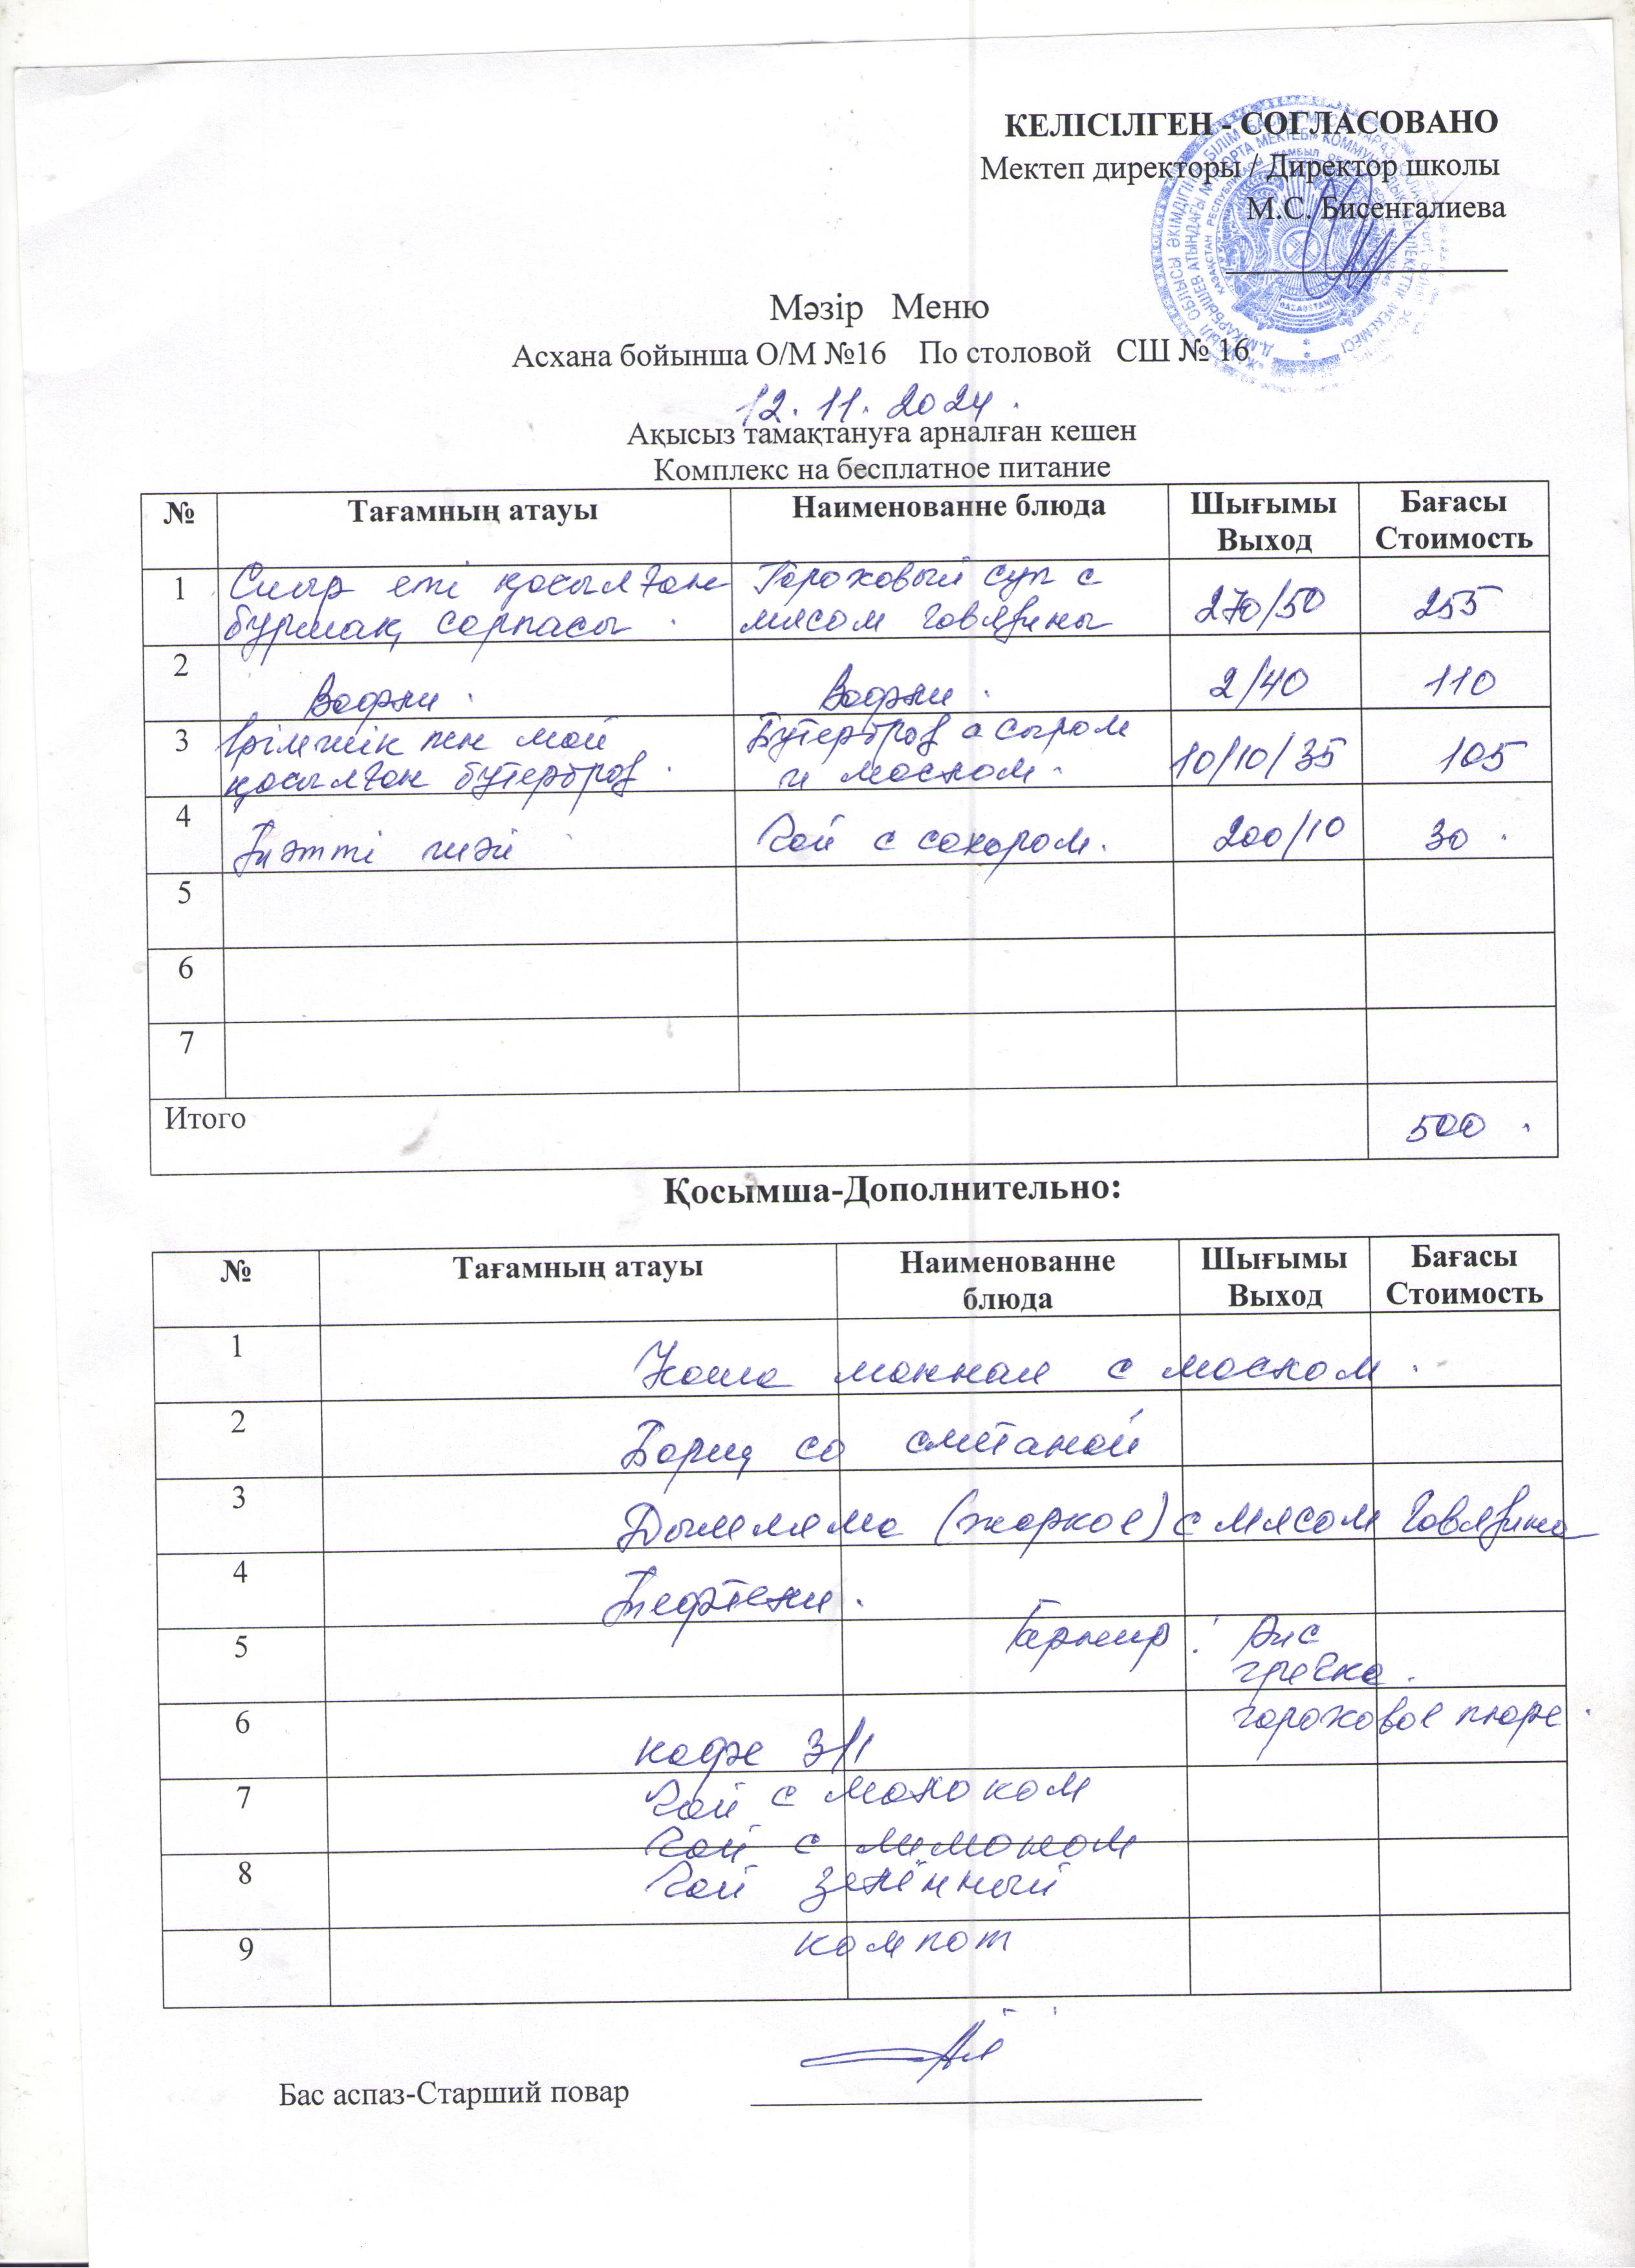 КЕЛІСІЛГЕН - СОГЛАСОВАНО
Мектеп директоры / Директор школы
М.С. Бисенгалиева
Мәзір Меню
Асхана бойынша О/М №16 По столовой СШ № 16
12.11.2024.
Ақысыз тамақтануға арналған кешен
Комплекс на бесплатное питание
№ Тағамның атауы Наименованне блюда Шығымы Выход Бағасы Стоимость
1 Сиыр еті қосылған бұршақ сорпасы. Гороховый суп с мясом говядины 270/50 255
2 Вафли. Вафли. 2/40 110
3 Ірімшік пен май қосылған бутерброд. Бутерброд с сыром и маслом. 10/10/35 105
4 Тәтті шәй Чай с сахаром. 200/10 30.
5
6
7
Итого 500.
Қосымша-Дополнительно:
№ Тағамның атауы Наименованне блюда Шығымы Выход Бағасы Стоимость
1 Каша манная с маслом.
2 Борщ со сметаной
3 Дымляма (жаркое) с мясом говядина
4 Тефтели.
5 Гарнир: Рис
гречка.
6 гороховое пюре.
кофе 3/1
7 Чай с молоком
Чай с лимоном
8 Чай зелённый
9 компот
Бас аспаз-Старший повар